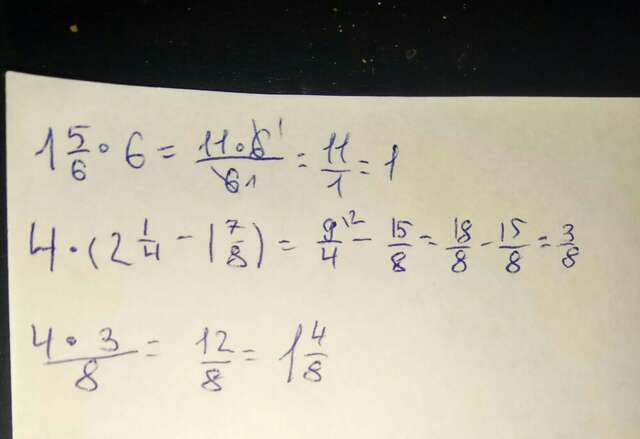 1 5/6 · 6 = 11·6 1/6 1 = 11/1 = 1
4 · (2 1/4 - 1 7/8) = 9/4 \2 - 15/8 = 18/8 - 15/8 = 3/8
4 · 3/8 = 12/8 = 1 4/8